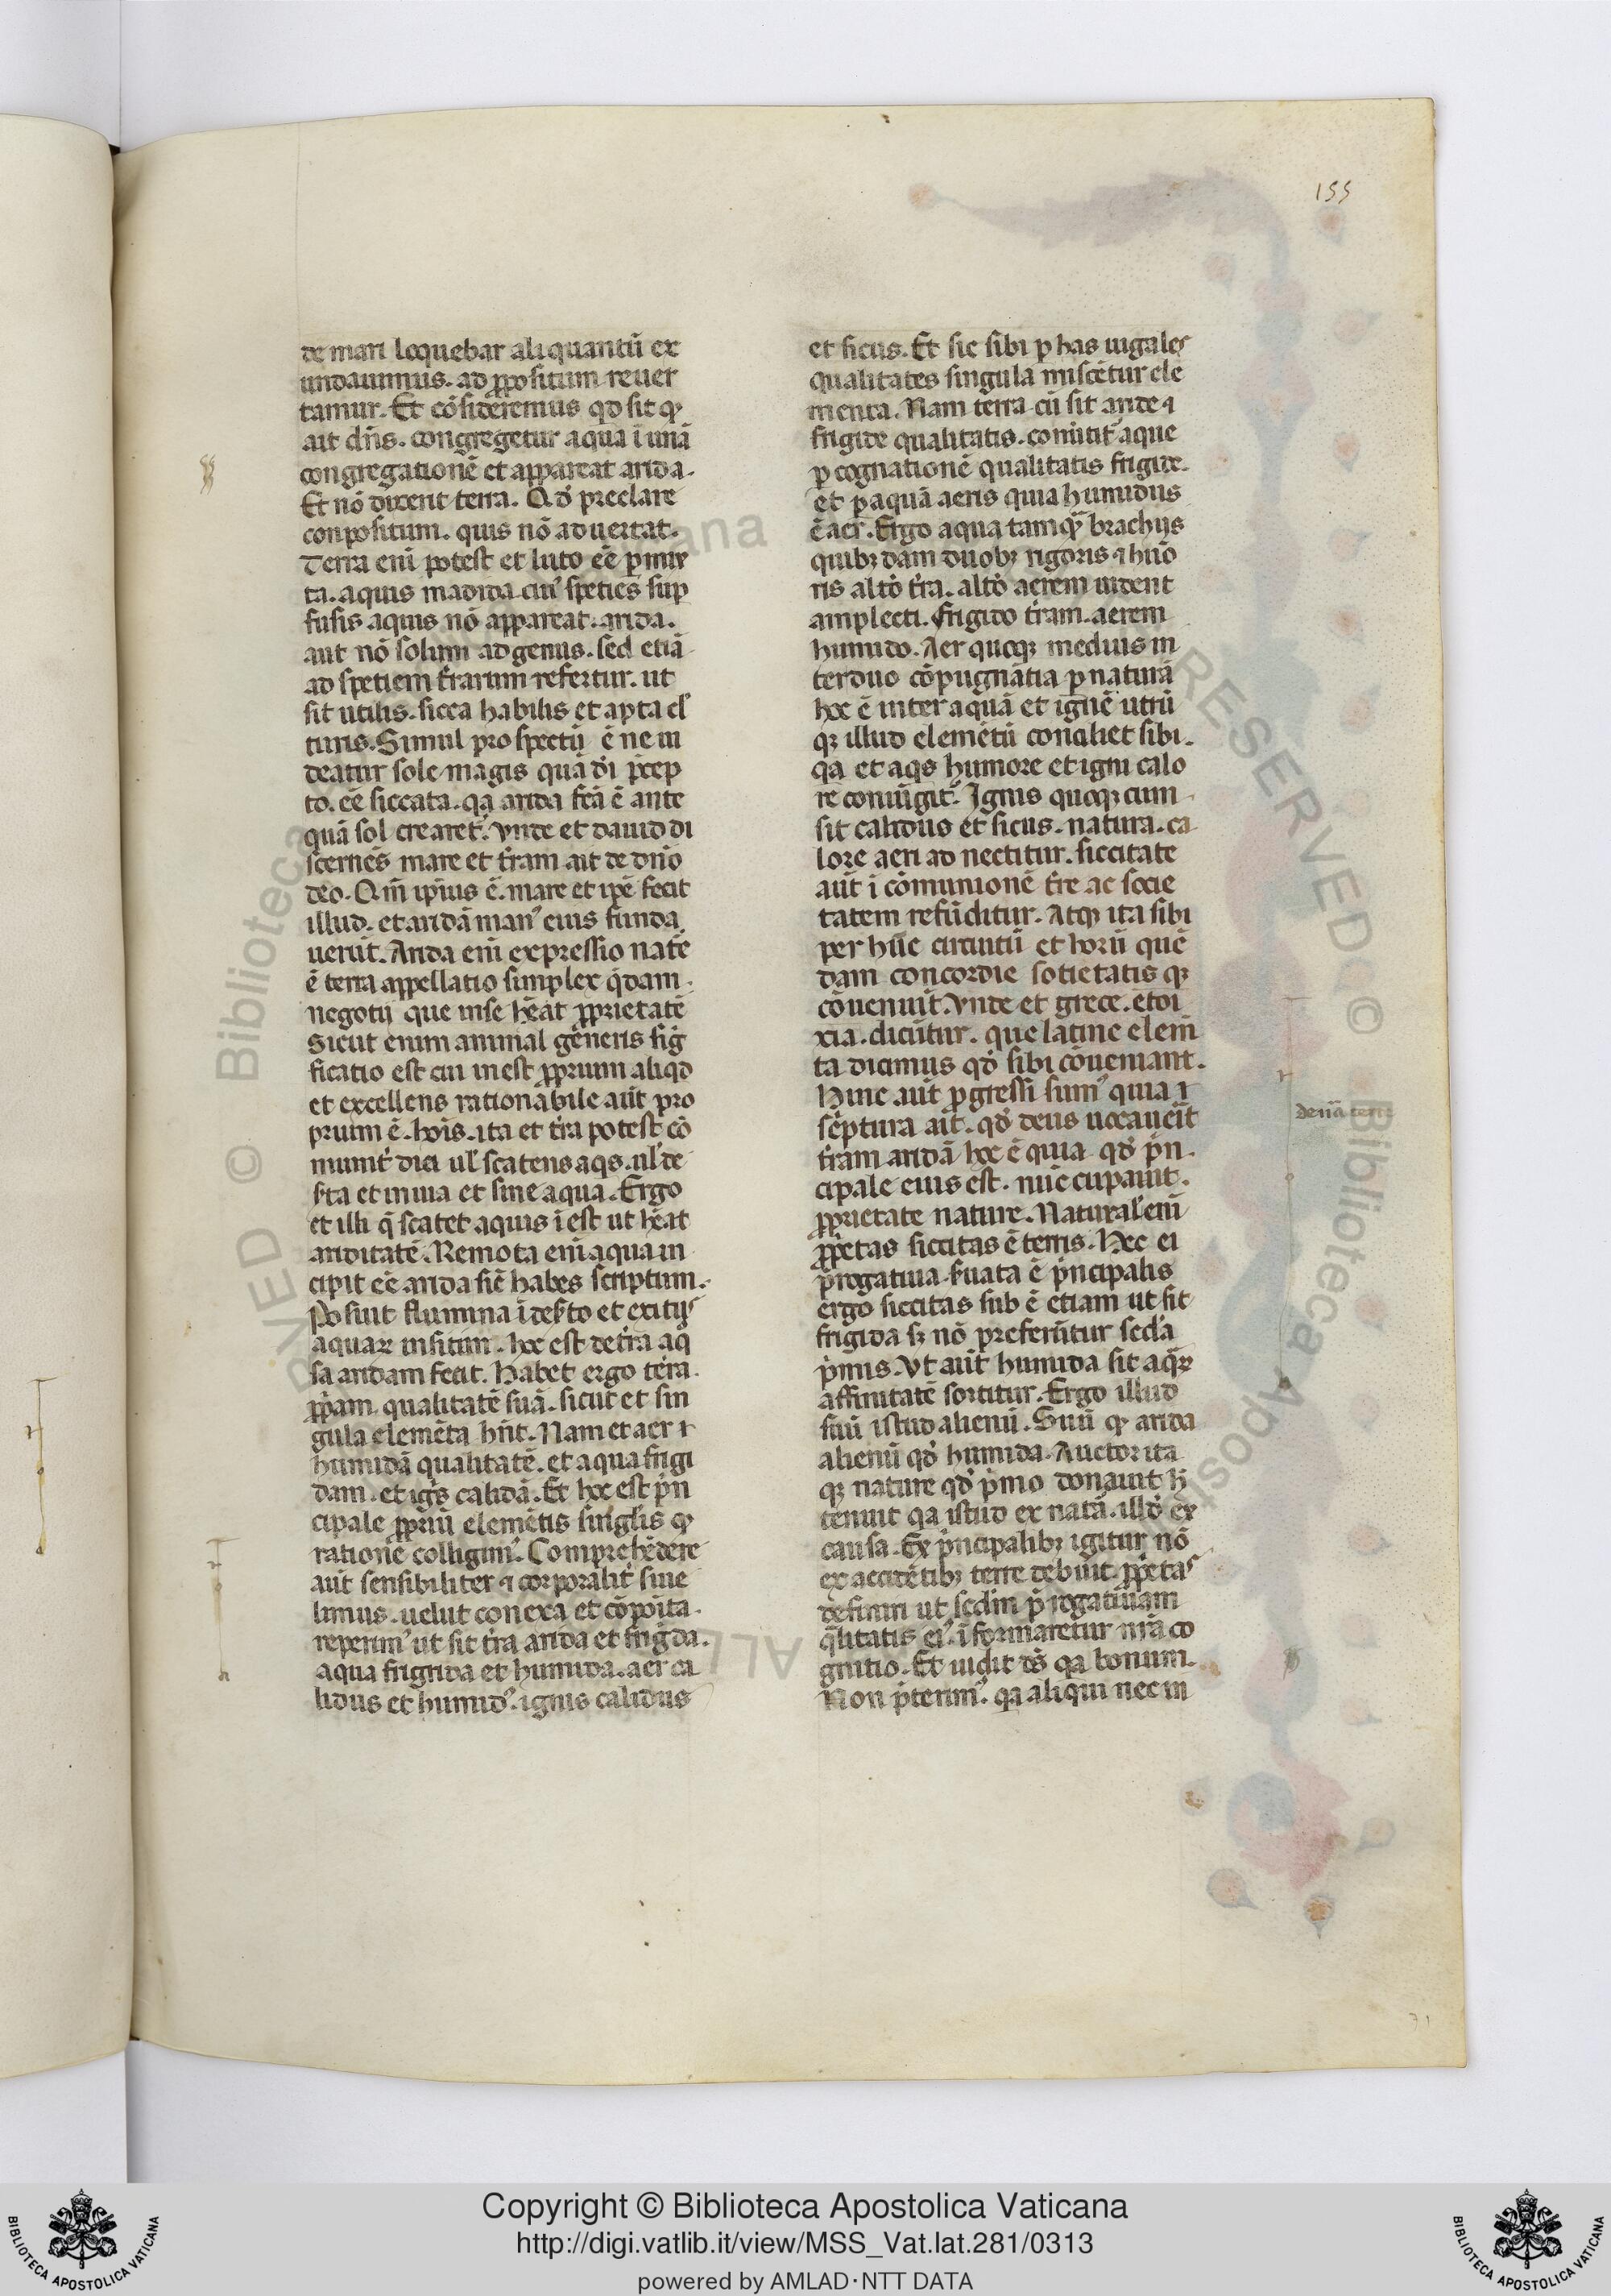 155
de mari loquebar aliquantū ex
undauimus. ad ꝓpositum reuer
tamur. Et cōsideremus qd sit ꝙ
ait dn̄s. congregetur aqua ī unā
congregationē et appareat arida.
Et nō dixerit terra. Qd̓ preclare
conpositum. quis nō aduertat.
Terra eni̅ potest et luto eē ꝑmix
ta. aquis madida cui᷒ speties suꝑ
fusis aquis nō appareat. arida.
aut nō solum ad genus. sed etiā
ad spetiem t̓rarum refertur. ut
sit utilis. sicca habilis et apta cl̓
turis. Simul prospectū ē ne ui
deatur sole magis quā di̓ p̄cep
to. eē siccata. qa arida fcā ē ante
quā sol crearet᷒. Vnde et dauid di
scernēs mare et t̓ram ait de dn̄o
deo. Qm̄ ip̄ius ē. mare et ip̄e fecit
illud. et aridā man᷒ eius funda
uerūt. Arida eni̅ expressio nat̓e
ē terra appellatio simplex q̓dam
negotij que inse hēat ꝓprietatē
Sicut enim animal generis sig̓
ficatio est cui inest ꝓprium aliqd
et excellens rationabile aūt pro
prium ē. ho̅i̅s. ita et t̓ra potest cō
munit̓ dici ul̓ scatens aqs. ul̓ de
s̓ta et inuia et sine aqua. Ergo
et illi q̄ scatet aquis ī est ut hēat
ariditatē. Remota eni̅ aqua in
cipit eē arida sic̄ habes scriptum.
Posiut flumina ī des̓to et exitus
aquaꝝ insitim. hoc est de t̓ra aq̓
sa aridam fecit. Habet ergo terra
ꝓp̄am qualitatē suā. sicut et sin
gula elemēta hn̄t. Nam et aer ⁊
humidā qualitatē. et aqua frigi
dam. et ig̓s calidā. Et hoc est p̓n
cipale ꝓpriū elemētis singl̓is ꝙ
rationē colligim᷒. Comprehēdere
aūt sensibiliter ⁊ corporalit̓ siue
limus. uelut conexa et cōpoīta.
reperim᷒ ut sit t̓ra arida et frig̓da.
aqua frigrida et humida. aer ca
lidus et humid᷒. ignis calidus
et sicus. Et sic sibi ꝑ has iugales
qualitates singula miscētur ele
menta. Nam terra cū sit aride ⁊
frigide qualitatis. con̄itit᷒ aque
ꝑ cognationē qualitatis frigide.
et ꝑ aquā aeris quia humidus
ē aer. Ergo aqua tamqꝫ brachijs
quibꝫdam duobꝫ rigoris ⁊ hūo
ris alt̓o t̓ra. alt̓o aerem uident
amplecti. frigido t̓ram. aerem
humido. Aer quoqꝫ medius in
ter duo cōpugnātia ꝑ naturā
hoc ē inter aquā et ignē utrū
qꝫ illud elemētū conciliet sibi.
qa et aqs humore et igni calo
re coniūgit᷒. Ignis quoqꝫ cum
sit calidus et sicus. natura. ca
lore aeri ad nectitur. siccitate
aūt ī cōmunionē t̓re ac socie
tatem refūditur. Atqꝫ ita sibi
per hūc circuitū et horū quē
dam concordie sotietatis qꝫ
cōuenuit. Vnde et grece. ētoi
xia. dicūtur. que latine elem̄
ta dicimus qd̓ sibi cōueniant.
Hinc aūt ꝓgressi sum᷒ quia ⁊
sc̓ptura ait. qd̓ deus uocauerit
t̓ram aridā hoc ē quia qd̓ p̓n
cipale eius est. nūc cupauit.
ꝓprietate nature. Natural̓ eni̅
ꝓp̓etas siccitas ē terris. Hec ei
p̓rogatiua s̓uata ē p̓ncipalis
ergo siccitas sub ē etiam ut sit
frigida sꝫ nō preferūtur secd̓a
p̓mis. Vt aūt humida sit aq̓ꝝ
affinitatē sortitur. Ergo illud
suū istud alienū. Suū ꝙ arida
alienū qd̓ humida. Auctor ita
qꝫ nature qd̓ p̓mo donauit h̄
tenuit qa istud ex nat̓a. illd̓ ex
causa. Ex p̓ncipalibꝫ igitur nō
ex accidētibꝫ terre debuit ꝓp̓etas
definiri ut sedm p̓rogatiuam
q̄litatis ei᷒. īformaretur nr̄a co
gnitio. Et uidit ds̄ qa bonum.
Non p̓terim᷒. qa aliqui nec in
Copyright © Biblioteca Apostolica Vaticana
http://digi.vatlib.it/view/MSS_Vat.lat.281/0313
powered by AMLAD·NTT DATA
BIBLIOTECA APOSTOLICA VATICANA
BIBLIOTECA APOSTOLICA VATICANA